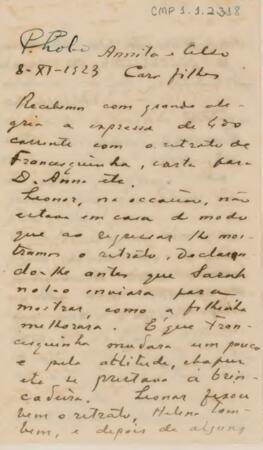 CMP 1.1.2.318
Annita e Celso
8-XI-1923 Caros filhos
Recebemos com grande ale-
gria a expressa de 6 do
corrente com o retrato de
Francisquinha, carta para
D. Anna etc.
Leonor, na occasião, não
estava em casa de modo
que ao regressar lhe mos-
tramos o retrato, declaran-
do-lhe antes que Sarah
nol-o enviara para
mostrar, como a filhinha
melhorara. E que Fran-
cisquinha mudara um pouco
e pela attitude, chapéu
etc se prestava à brin-
cadeira. Leonor
bem o retrato, Helena tam-
bem, e depois de alguns